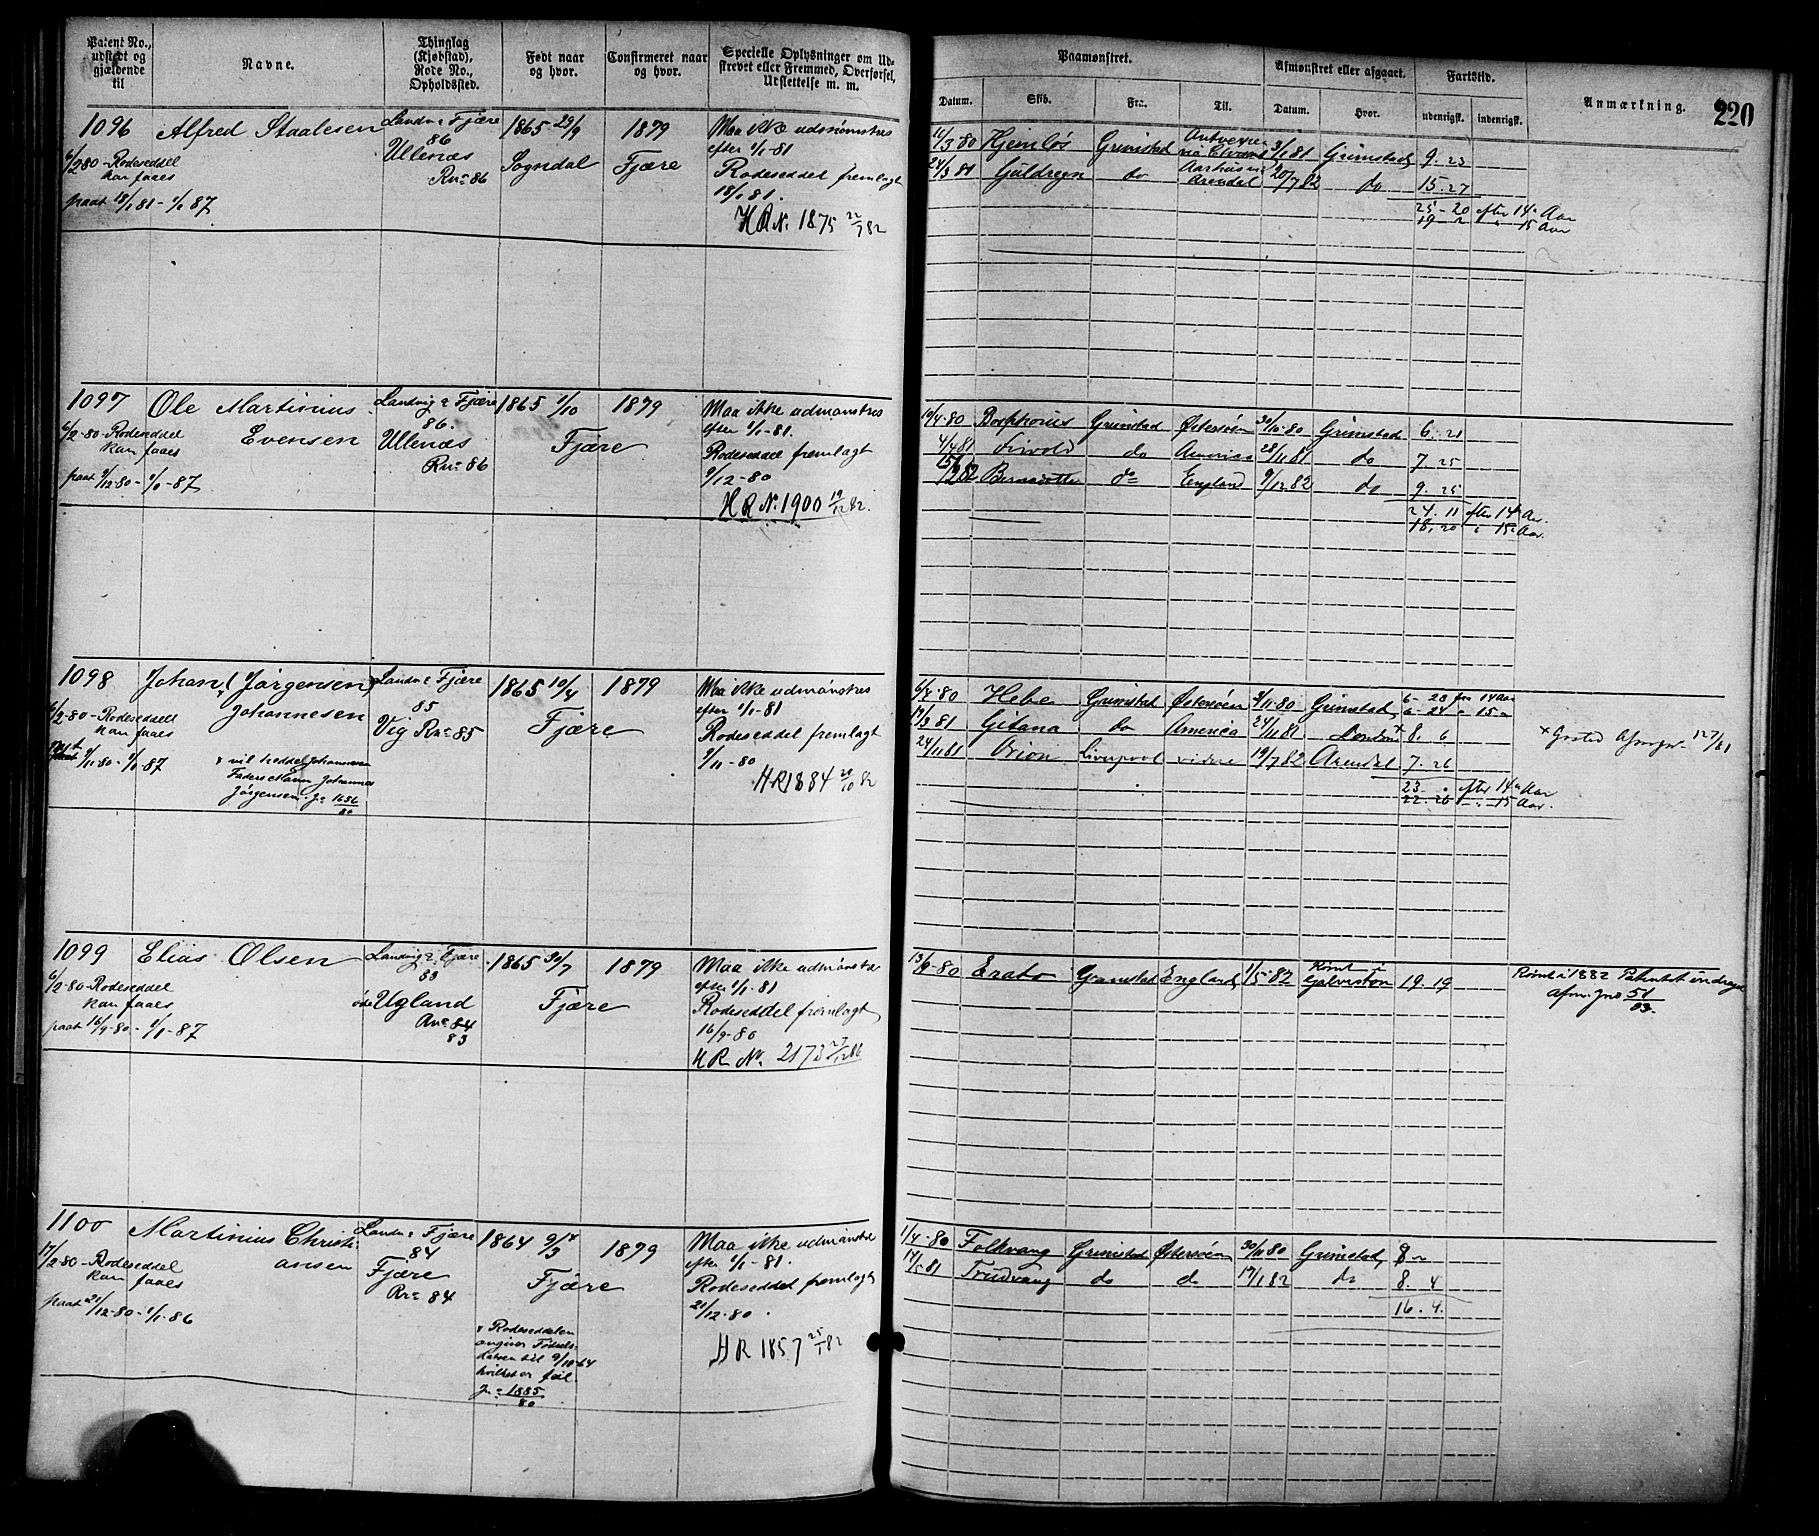 Patent No., udstedt og gjældende til
Navne.
Thinglag (Kjøbstad), Rode No., Opholdssted.
Født naar og hvor.
Confirmeret naar og hvor.
Specielle Oplysninger om Udskrevet eller Fremmed, Overførsel, Udslettelse m. m.
Paamønstret.
Afmønstret eller afgaaet.
Fartstid.
Anmærkning.
220
Datum.
Skib.
Fra.
Til.
Datum.
Hvor.
udenrigsk.
indenrigsk.
1096 Alfred Staalesen Landv & Fjære 1865 29/9 1879 Maa ikke udmønstres
86 efter 1/1-81
6/2-80-Rodeseddel Ullenæs Sogndal Fjære Rodeseddel fremlagt
kan faaes Rn: 86 18/1 81.
paat 18/1 81 - 1/1 87 H R N. 1875 22/7 82
11/3 80 Hjemløs Grimstad Antverpen 3/1 81 Grimstad 9. 23
24/3 81 Guldregn do Aarhus via Arendal 20/7 82 do 15. 27
25-20 efter 14 Aar
19 2 " 15 Aar
1097 Ole Martinius Landvig & Fjære 1865 1/10 1879 Maa ikke udmønstres
Evensen 86. efter 1/1-81.
6/2-80-Rodeseddel Ullenæs Fjære Rodeseddel fremlagt
kan faaes Rn: 86 9/12-80
paat 9/12-80 - 1/1-87 H R N. 1900 19/12 82.
10/4-80 Bosphorus Grimstad Østersøen 30/10-80 Grimstad 6. 21
4/4 81 do America 28/11 81 do 7. 25
82 Bernadotte do England 9/12 82 do 9. 25
24. 11 efter 14 Aar.
18. 20 " 15 Aar.
1098 Johan (Jørgensen) Landv & Fjære 1865 10/4 1879 Maa ikke udmønstres
Johannesen 85 efter 1/1-81
6/2-80-Rodeseddel Vig Rn: 85 Fjære Rodeseddel fremlagt
kan faaes 9/11-80
paat 9/11-80-1/1-87 HR 1884 20/10 82
x vil hedde Johannesen
Faderens Navn Johannes
Jørgensen. Jn: 1636/80
6/4-80 Hebe Grimstad Østersøen 3/11-80 Grimstad 6-23 fra 14 Aar
6-24 " 15 "
17/3 81 Gitana do America 24/11 81 London x 8. 6
x Afmpr. 127/81
24/11 81 Orion Liverpool videre 19/7 82 Arendal 7. 26
23 " efter 14 Aar
22. 26 " 15 Aar.
1099 Elias Olsen Landvig & Fjære 1865 30/7 1879 Maa ikke udmønstres
83 efter 1/1-81
6/2-80-Rodeseddel Ugland Fjære Rodeseddel fremlagt
kan faaes Rn: 84 16/9-80
paat 16/9-80-1/1-87 83 H R N. 2173 27/12 86
13/9-80 Erato Grimstad England 1/5-82 Rømt i Galveston 19. 19 Rømt i 1882 Patentet inddraget
afm. Jn: 51/83.
1100 Martinius Christi- Landv & Fjære 1864 9/3 x 1879 Maa ikke udmønstres
ansen 84 efter 1/1-81.
17/2-80-Rodeseddel Fjære Fjære Rodeseddel fremlagt
kan faaes Rn: 84 21/12-80.
paat 21/12-80-1/1-86 HR 1857 25/1 82
x Rodeseddelen
angiver Fødsels-
datoen til 9/10-64
hvilket er feil.
Jn: 1885/80
1/4-80 Folkvang Grimstad Østersøen 30/11 80 Grimstad 8 -
17/5 81 Trudvang do do 17/1 82 do 8. 4
16. 4.